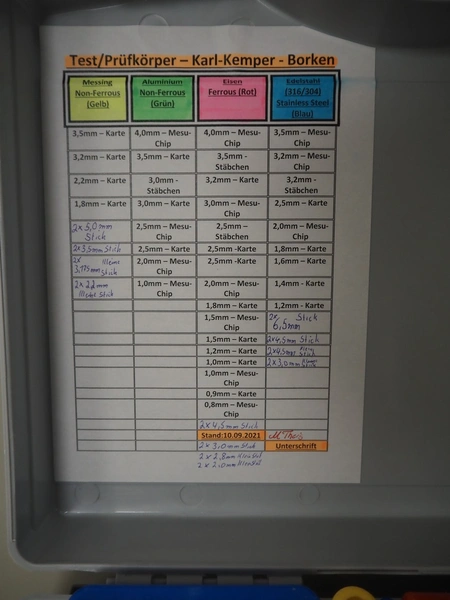 Test/Prüfkörper – Karl-Kemper - Borken
Messing
Non-Ferrous
(Gelb)
Aluminium
Non-Ferrous
(Grün)
Eisen
Ferrous (Rot)
Edelstahl
(316/304)
Stainless Steel
(Blau)
3,5mm – Karte
4,0mm – Mesu-
Chip
4,0mm – Mesu-
Chip
3,5mm – Mesu-
Chip
3,2mm – Karte
3,5mm – Karte
3,5mm -
Stäbchen
3,2mm – Mesu-
Chip
2,2mm – Karte
3,0mm -
Stäbchen
3,2mm – Karte
3,2mm -
Stäbchen
1,8mm – Karte
3,0mm – Karte
3,0mm – Mesu-
Chip
2,5mm – Karte
2x 5,0mm
Stick
2,5mm – Mesu-
Chip
2,5mm –
Stäbchen
2,0mm – Mesu-
Chip
2x 3,5mm Stick
2,5mm – Karte
2,5mm -Karte
1,8mm – Karte
2x
3,175mm Stick
2,0mm – Mesu-
Chip
2,5mm -Karte
1,6mm – Karte
2x 22mm
Stick
1,0mm – Mesu-
Chip
2,0mm – Mesu-
Chip
1,4mm - Karte
1,8mm – Karte
1,2mm - Karte
1,5mm – Mesu-
Chip
2x Stick
6,5mm
1,5mm – Karte
2x4,5mm Stick
1,2mm – Karte
2x4,5mm Stick
1,0mm – Karte
2x3,0mm
1,0mm – Mesu-
Chip
0,9mm – Karte
0,8mm – Mesu-
Chip
2x4,5mm Stick
Stand:10.09.2021
2x 3,0mm Stick
Unterschrift
2x 2,8mm
2x 2,0mm